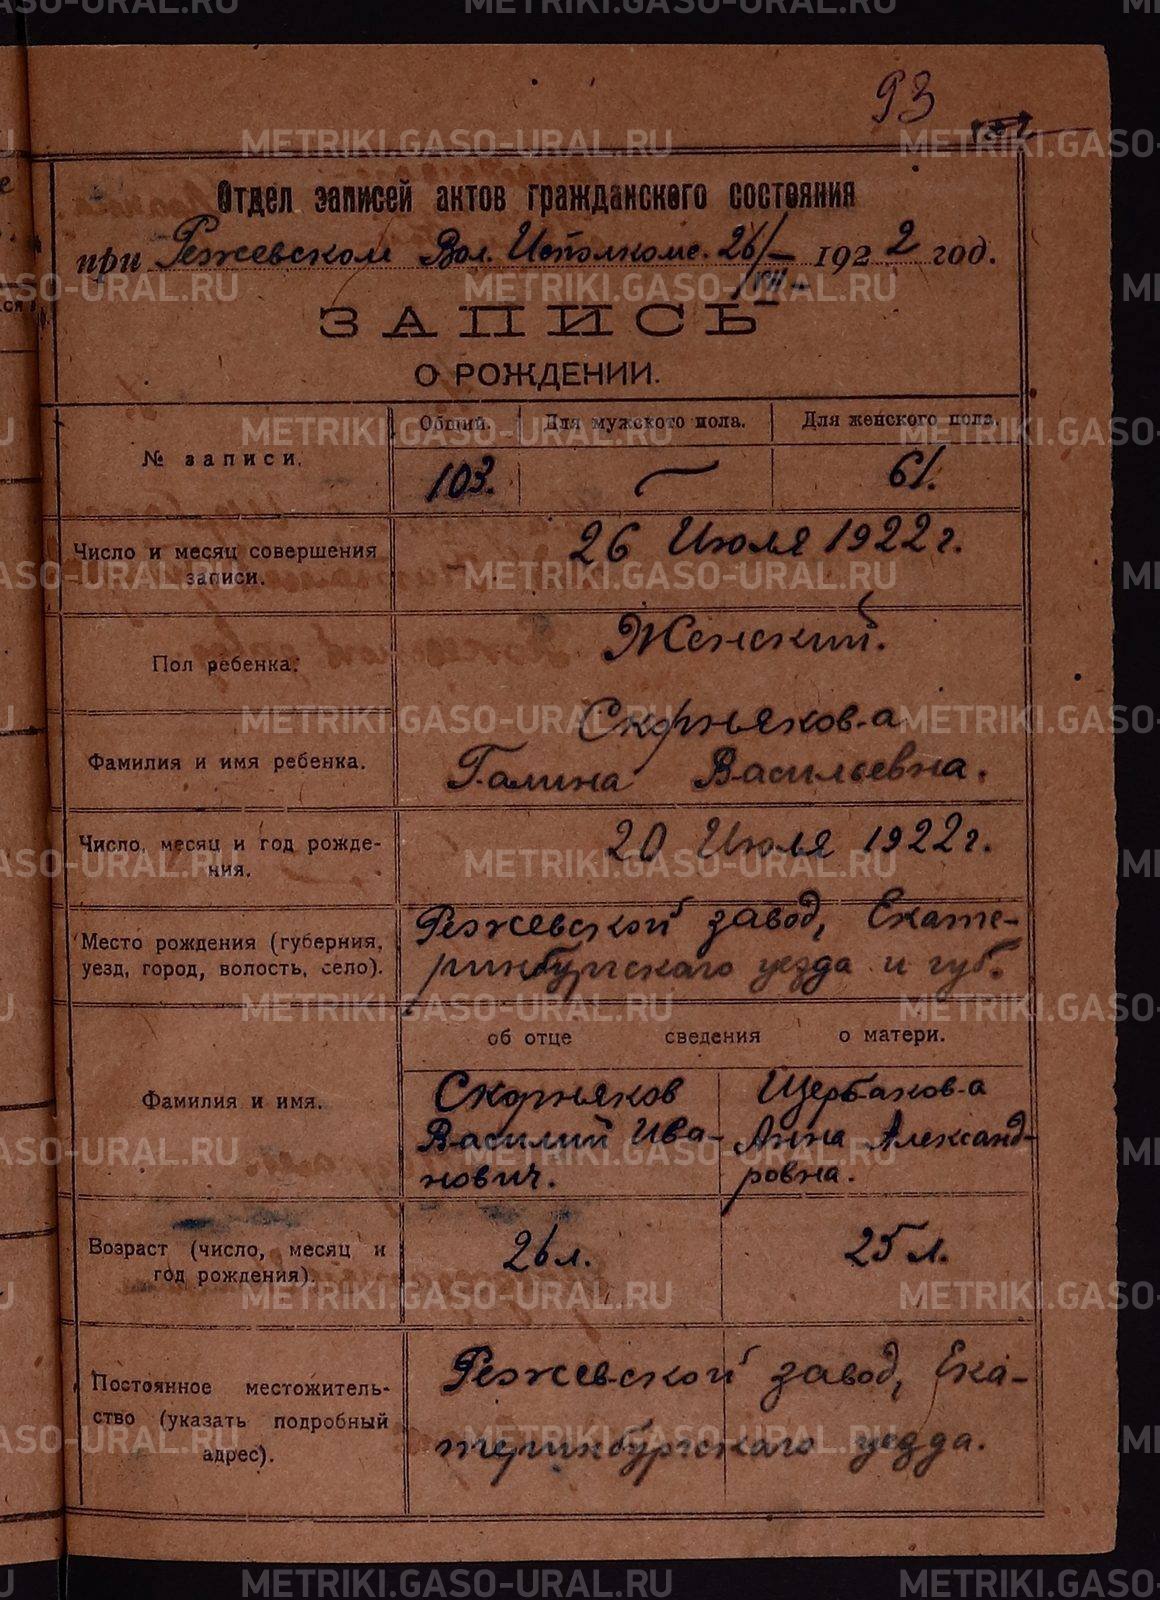 93
Отдел записей актов гражданского состояния
при Режевском Вол. Исполкоме. 26/VII – 1922 год.
ЗАПИСЬ
О РОЖДЕНИИ.
№ записи.
Общий.
Для мужского пола.
Для женского пола.
103.
—
61.
Число и месяц совершения
записи.
26 Июля 1922 г.
Пол ребенка.
Женский.
Фамилия и имя ребенка.
Скорнякова
Галина Васильевна.
Число, месяц и год рожде-
ния.
20 Июля 1922 г.
Место рождения (губерния,
уезд, город, волость, село).
Режевской завод, Екате-
ринбургскаго уезда и губ.
об отце сведения о матери.
Фамилия и имя.
Скорняков
Василий Ива-
нович.
Щербакова
Анна Александ-
ровна.
Возраст (число, месяц и
год рождения).
26 л.
25 л.
Постоянное местожитель-
ство (указать подробный
адрес).
Режевской завод, Ека-
теринбургскаго уезда.
METRIKI.GASO-URAL.RU